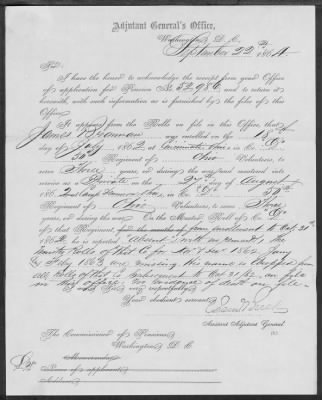 Adjutant General's Office,
Washington, D. C.
September 22nd, 1864.
Sir:
I have the honor to acknowledge the receipt from your Office
of application for Pension No. 52,986, and to return it
herewith, with such information as is furnished by the files of this
Office.
It appears from the Rolls on file in this Office, that
James was enrolled on the 18
day of July, 1862, at Cincinnati Ohio in Co.
50th Regiment of Ohio Volunteers, to
serve Three years, or during the war, and mustered into
service as a Private on the day of August
1862, at Ohio, in Co. 50th
Regiment of Ohio Volunteers, to serve Three
years, or during the war. On the Muster Roll of Co.
of that Regiment, for the months of from enrollment to Oct. 31st
1862, he is reported "absent sick
Muster Rolls of that Co for Nov. Dec. 1862, Jany
& Feby 1863 are missing. His name is dropped from
all Rolls of that Co subsequent to Oct 31/62, on file
in this office. No evidence of death on file.
I am, Sir, very respectfully,
Your obedient servant,
Assistant Adjutant General
The Commissioner of Pensions,
Washington, D. C.
Memoranda:
Name of applicant,
Address,